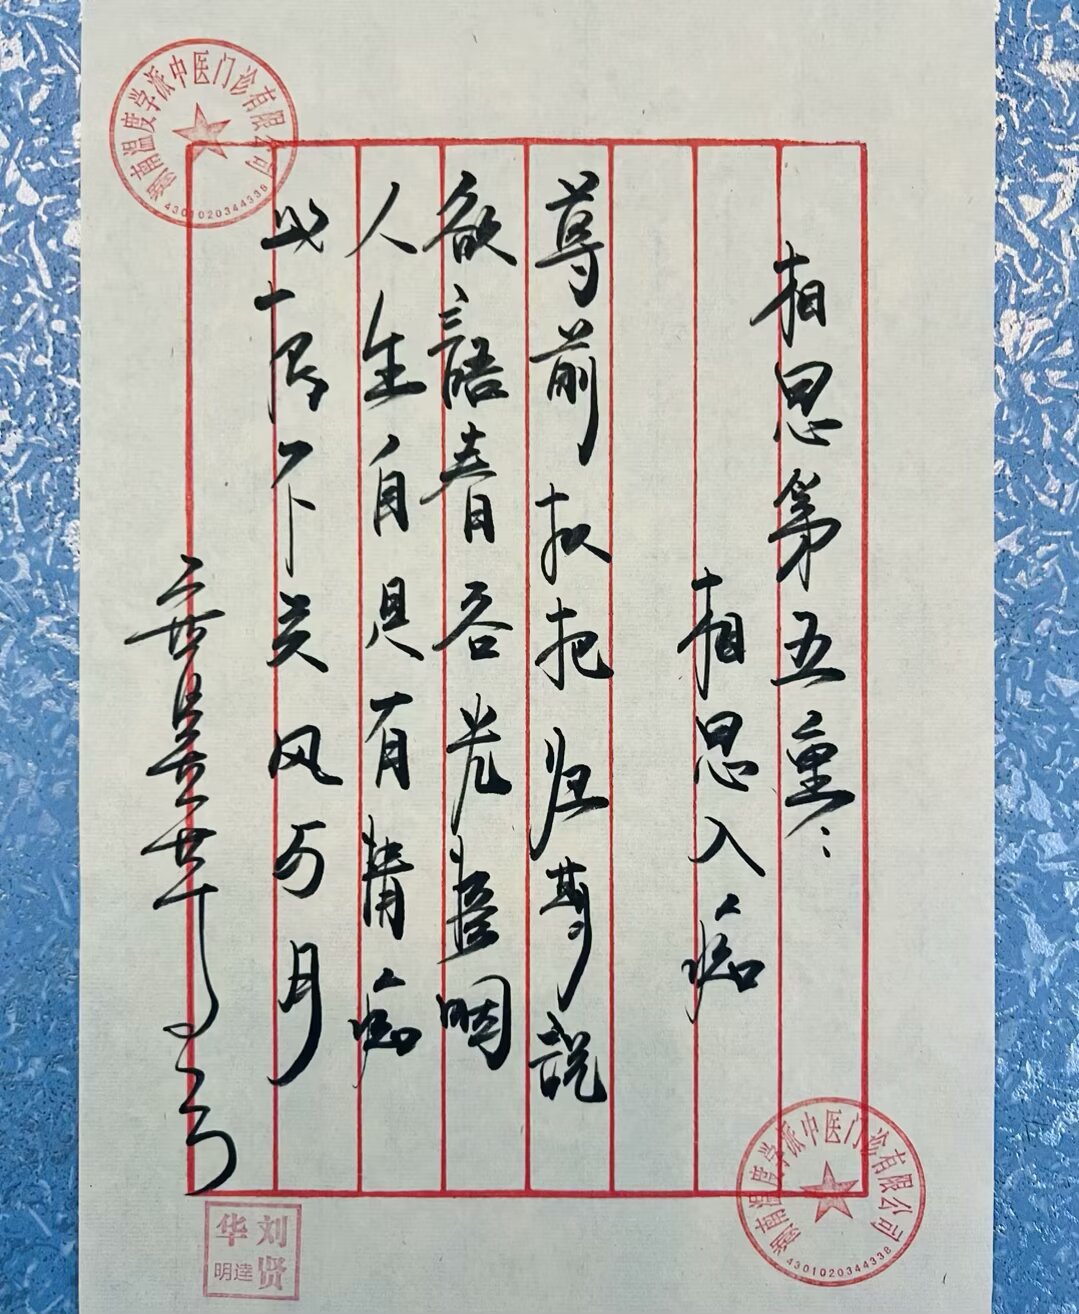 相思第五重：
相思入痴
尊前拟把归期説
欲語春容先惨咽
人生自是有情痴
此恨不关风与月
湖南温度学派中医门诊有限公司
4301020344338
刘贤华
湖南温度学派中医门诊有限公司
4301020344338